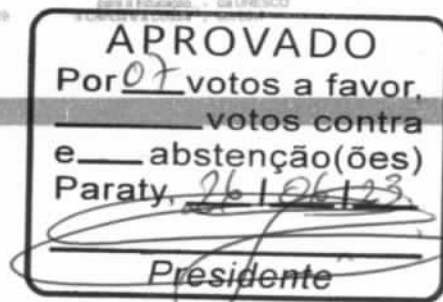 DA UNESCO
APROVADO
Por 07 votos a favor,
______votos contra
e___abstenção(ões)
Paraty, 26 / 06 / 23.
Presidente